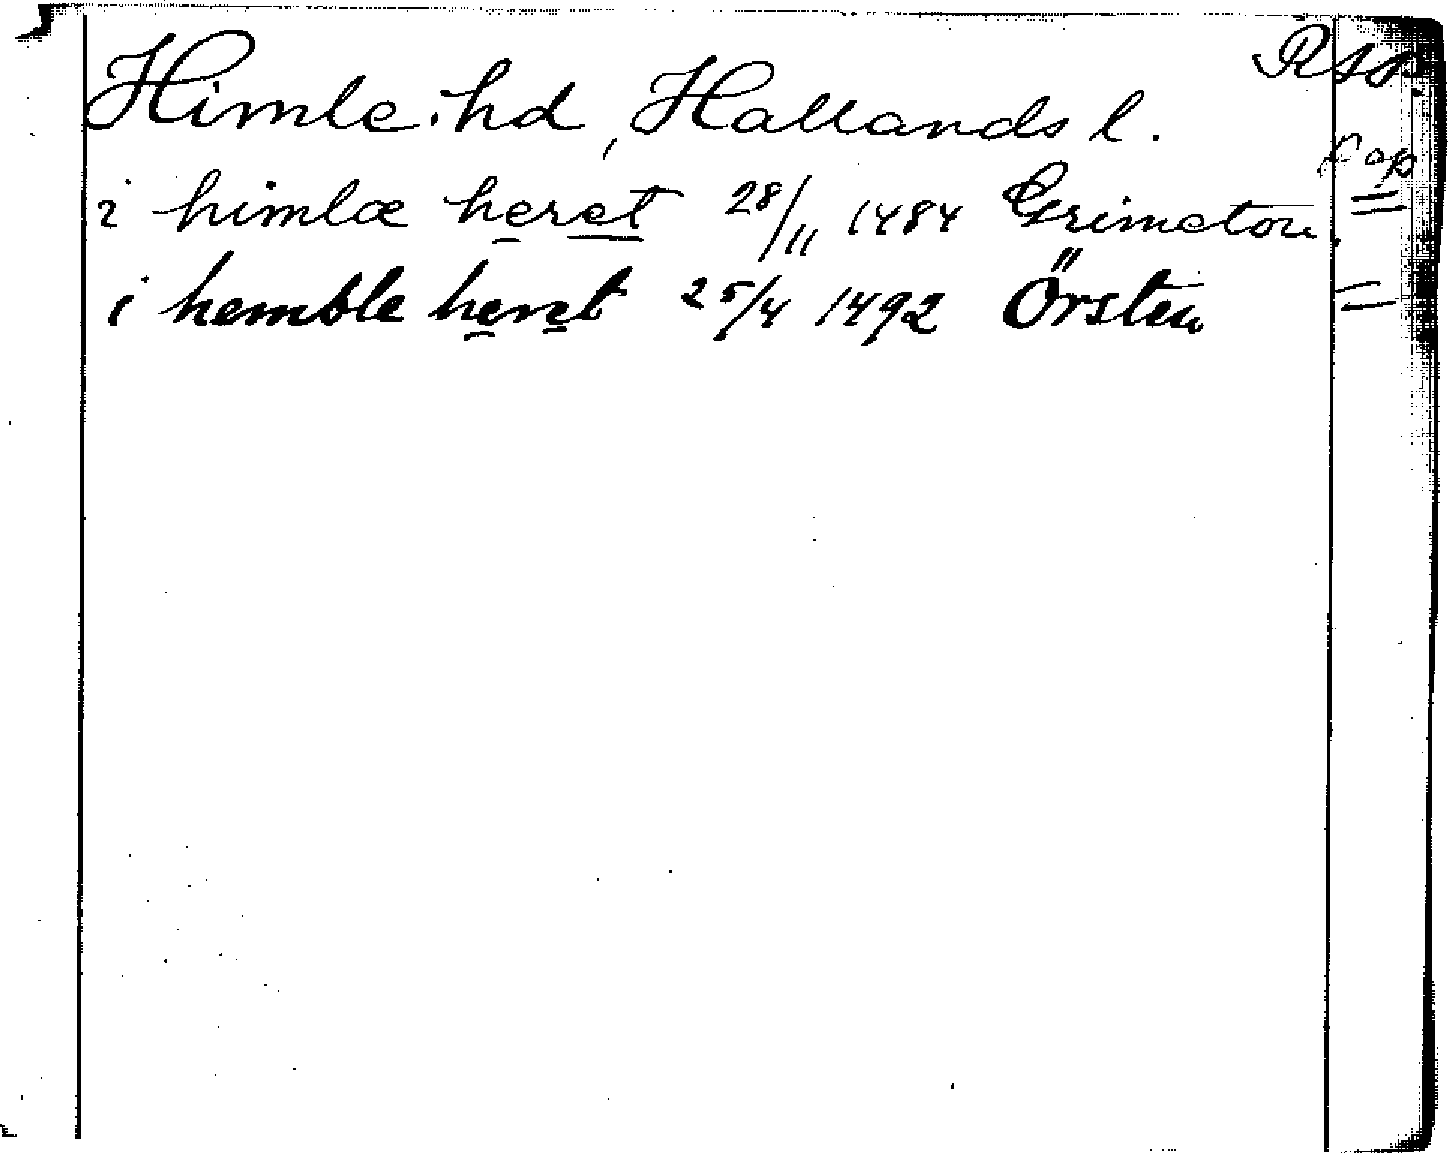 Himle hd, Hallands l.
i himlæ heret 28/11 1484 Grimeton
i hemble heret 25/4 1492 Örsten